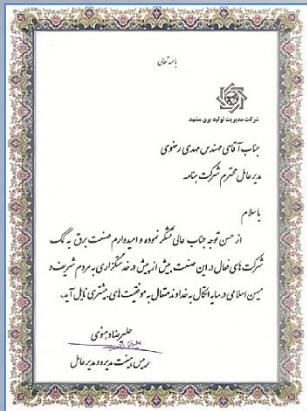 باسمه تعالی
شرکت مدیریت تولید برق مشهد
جناب آقای مهندس مهدی رضوی
مدیر عامل محترم شرکت بنامه
با سلام
از حسن توجه جناب عالی تشکر نموده و امیدوارم صنعت برق به کمک
شرکت های فعال در این صنعت بیش از پیش در خدمتگزاری به مردم شریف و
میهن اسلامی در سایه اتکال به خداوند متعال به موفقیت های بیشتری نایل آید.
رئیس هیئت مدیره و مدیر عامل